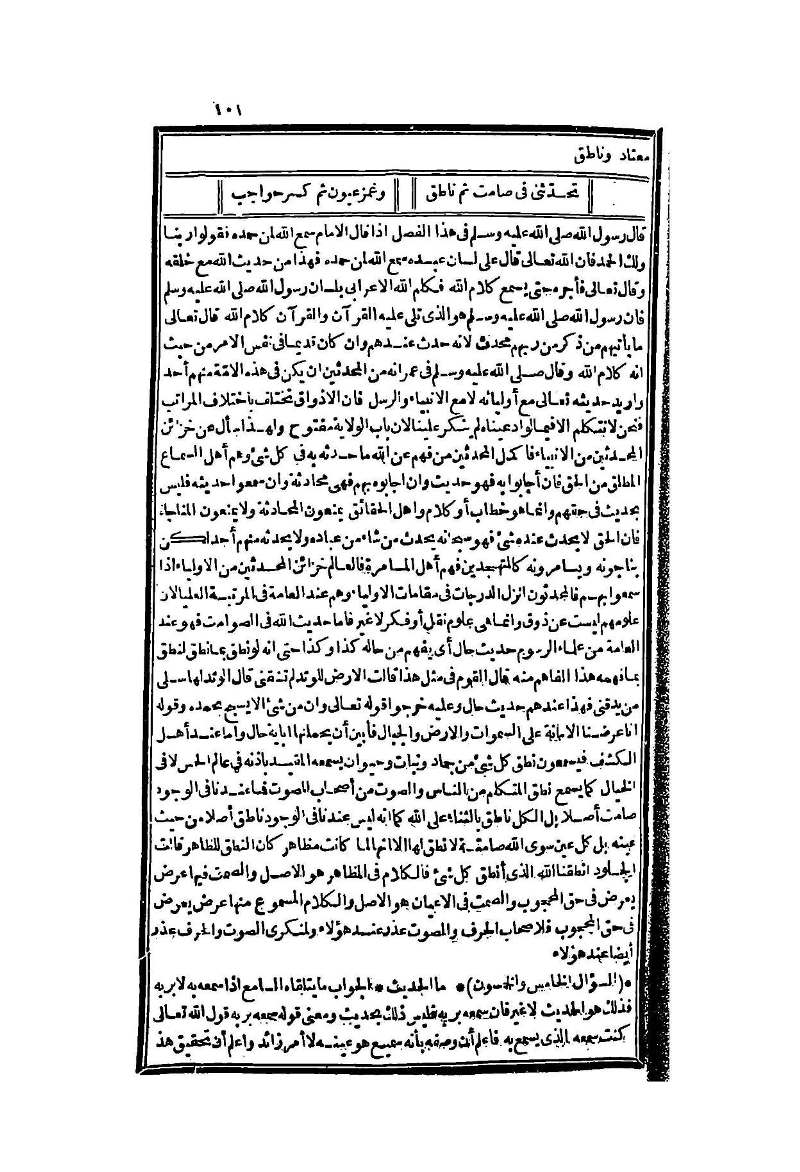 ١٠١
معتاد وناطق
تحدثنى فى صامت ثم ناطق وغمز عيون ثم كسر حواجب
قال رسول الله صلى الله عليه وسلم فى هذا الفصل اذا قال الامام سمع الله لمن حمده فقولوا ربنا
ولك الحمد فان الله تعالى قال على لسان عبده سمع الله لمن حمده فهذا من حديث الله مع خلقه
وقال تعالى فأجره حتى يسمع كلام الله فكلم الله الاعرابى بلسان رسول الله صلى الله عليه وسلم
فان رسول الله صلى الله عليه وسلم هو الذى تلى عليه القرآن والقرآن كلام الله قال تعالى
ما يأتيهم من ذكر من ربهم محدث لانه حدث عندهم وان كان قديما فى نفس الامر من حيث
انه كلام الله وقال صلى الله عليه وسلم فى عمر انه من المحدثين ان يكن فى هذه الامة منهم أحد
واريد حديثه تعالى مع أوليائه لا مع الانبياء والرسل فان الاذواق تختلف باختلاف المراتب
فنحن لا نتكلم الا فيما لو ادعيناه لم ينكر علينا لان باب الولاية مفتوح ولهذا سأل عن خزائن
المحدثين من الانبياء فاكمل المحدثين من فهم عن الله ما حدثه به فى كل شئ وهم أهل السماع
المطلق من الحق فان أجابوا به فهو حديث وان اجابوه بهم فهى محادثة وان سمعوا حديثه فليس
بحديث فى حقهم وانما هو خطاب أو كلام واهل الحقائق يمنعون المحادثة ولا يمنعون المناجاة
فان الحق لا يحدث عنده شئ فهو سبحانه يحدث من شاء من عباده ولا يحدثه منهم أحد لكن
يناجونه ويسامرونه كالمتهجدين فهم أهل المسامرة فالعالم خزائن المحدثين من الاولياء اذا
سمعوا بهم فالمحدثون انزل الدرجات فى مقامات الاولياء وهم عند العامة فى المرتبة العليا لان
علومهم ليست عن ذوق وانما هى علوم نقل أو فكر لا غير فاما حديث الله فى الصوامت فهو عند
العامة من علماء الرسوم حديث حال أى يفهم من حاله كذا وكذا حتى انه لو نطق لنطق
بما فهمه هذا الفاهم منه قال القوم فى مثل هذا قالت الارض للوتد لم تشقنى قال الوتد لها سلى
من يدقنى فهذا عندهم حديث حال وعليه خرجوا قوله تعالى وان من شئ الا يسبح بحمده وقوله
انا عرضنا الامانة على السموات والارض والجبال فأبين أن يحملنها اباية حال واما عند أهل
الكشف فيسمعون نطق كل شئ من جماد ونبات وحيوان يسمعه المقيد باذنه فى عالم الحس لا فى
الخيال كما يسمع نطق المتكلم من الناس والصوت من أصحاب الصوت فما عندنا فى الوجود
صامت أصلا بل الكل ناطق بالثناء على الله كما انه ليس عندنا فى الوجود ناطق أصلا من حيث
عينه بل كل عين سوى الله صامتة لا نطق لها الا انها لما كانت مظاهر كان النطق للظاهر قالت
الجلود انطقنا الله الذى أنطق كل شئ فالكلام فى المظاهر هو الاصل والصمت فيها عرض
يعرض فى حق المحجوب والصمت فى الاعيان هو الاصل والكلام المسموع منها عرض يعرض
فى حق المحجوب فلاصحاب الحرف والصوت عذر عند هؤلاء ولمنكرى الصوت والحرف عذر
أيضا عند هؤلاء
* (السؤال الخامس والخمسون) * ما الحديث * الجواب ما يتلقاه السامع اذا سمعه به لا بربه
فذلك هو الحديث لا غير فان سمعه بربه فليس ذلك بحديث ومعنى قوله سمعه بربه قول الله تعالى
كنت سمعه الذى يسمع به فاعلم أن وصفه بأنه سميع هو عينه لا أمر زائد واعلم أن تحقيق هذ